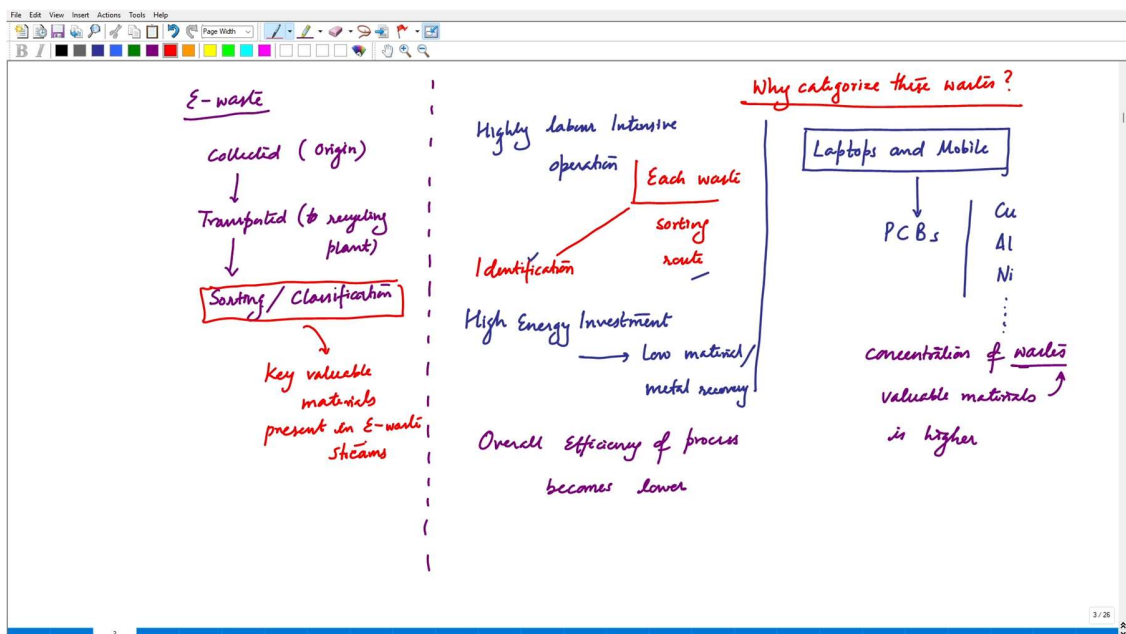 File Edit View Insert Actions Tools Help
Page Width
B I
E-waste
Collected (Origin)
Transported (to recycling
plant)
Sorting / Classification
Key valuable
materials
present in E-waste
Streams
Why categorize these wastes?
Highly labour Intensive
operation
Each waste
sorting
route
Identification
High Energy Investment
→ Low material/
metal recovery
Overall Efficiency of process
becomes lower
Laptops and Mobile
PCBs
Cu
Al
Ni
concentration of wastes
valuable materials
is higher
3 / 26
2